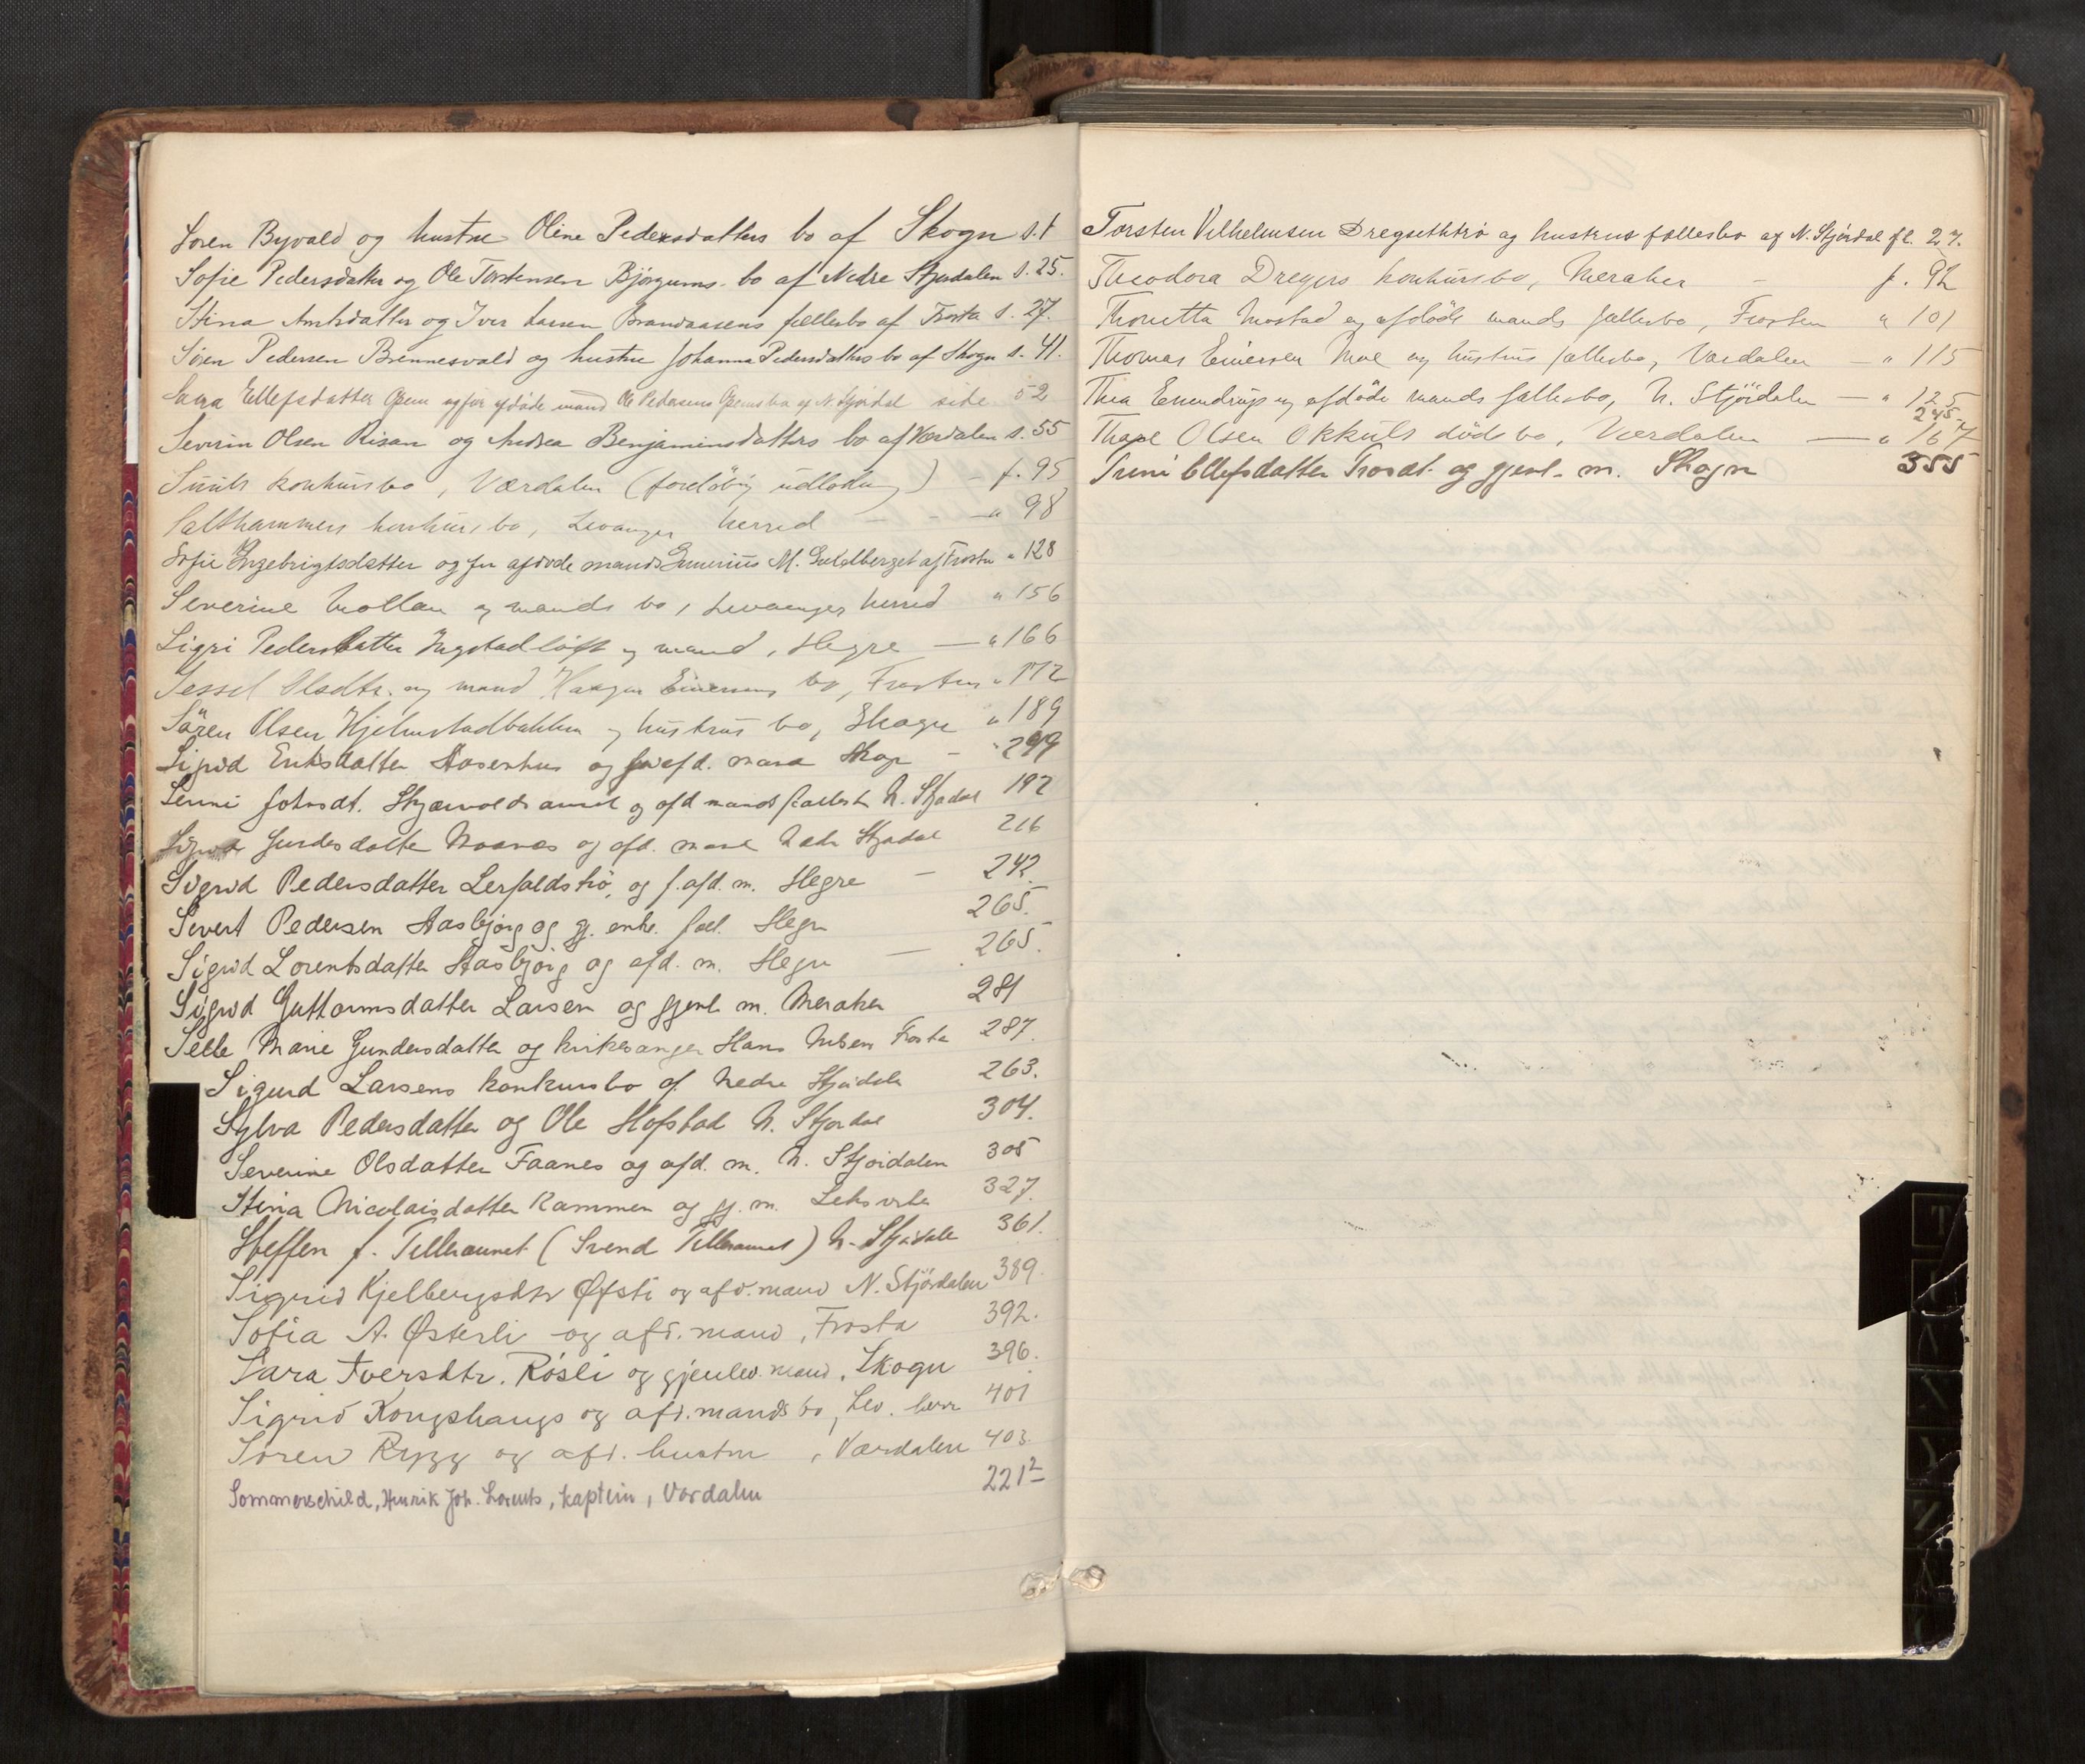 Søren Byvald og hustru Oline Pedersdatters bo af Skogn s. 1
Sofie Pedersdatter og Ole Torstensen Bjørgums bo af Nedre Stjørdalen s. 25.
Stina Arntsdatter og Iver Larsen Brandaasens fællesbo af Frosta s. 27.
Søren Pedersen Brennesvald og hustru Johanna Pedersdatters bo af Skogn s. 41.
Sara Ellefsdatter og for afdøde mand Ole Pedersens bo af N. Stjørdal side 52
Severin Olsen Risan og Andrea Benjaminsdatters bo af Værdalen s. 55
konkursbo, Værdalen (foreløbig udlodning) - f. 95
Salthammers konkursbo, Levanger herred - - " 98
Sofie Engebrigtsdatter og for afdøde mands M. af Frosta " 128
Severine Mollan og mands bo, Levanger herred " 156
Sigri Pedersdatter og mand, Hegre — " 166
Sessel Olsdtr. og mand Haagen Einersens bo, Frosten " 172
Søren Olsen Hjelmstadbakken og hustrus bo, Skogn " 189
Sigrid Eriksdatter Aasenhus og for afd. mand Skogn - " 299
Johnsdt. og afd mands fællesbo N. Stjørdal 192
Sigrid og afd. mand Nedr Stjørdal 216
Sigrid Pedersdatter Lerfaldstrø, og f. afd. m. Hegre — 242.
Sivert Pedersen Aasbjørg og gj. enke. fæl. Hegre 265.
Sigrid Lorentsdatter Aasbjørg og afd. m. Hegre — 265.
Sigrid Guttormsdatter Larsen og gjenl m. Meraker 281
Selle Marie Gundersdatter og kirkesanger Hans Nilsen Frosta 287.
Sigurd Larsens konkursbo af Nedre Stjørdalen 263.
Sylva Pedersdatter og Ole Hofstad N. Stjørdal 304.
Severine Olsdatter Faanes og afd. m. N. Stjørdalen 305
Stina Nicolaisdatter Rammen og gj. m. Leksviken 327.
Steffen f. Tilleraunet (Svend Tilleraunet) N. Stjørdalen 361.
Sigrid Kjelbergsdtr Øfsti og afd. mand N. Stjørdalen 389.
Sofia A. Østerli og afd. mand, Frosta 392.
Sara Iversdtr. Røsli og gjenlev. mand, Skogn 396.
Sigrid Kongshaugs og afd. mands bo, Lev. herr 401
Søren Rygg og afd. hustru, Værdalen 403.
Sommerschild, Henrik Joh. Lorents, kaptein, Verdalen 221 2
Torsten Vilhelmsen Dregsethtrø og hustrus fællesbo af N. Stjørdal fl. 27.
Theodora Dreyers konkursbo, Meraker - f. 92
Thonetta Mostad og afdøde mands fællesbo, Frosten " 101
Thomas Einersen Moe og hustrus fællesbo, Værdalen — " 115
Thea Emendrup og afdøde mands fællesbo, N. Stjördalen — " 125
245
Olsen Okkuls dødsbo, Værdalen — " 167
Trine Ellefsdatter og gjenl. m. Skogn 355